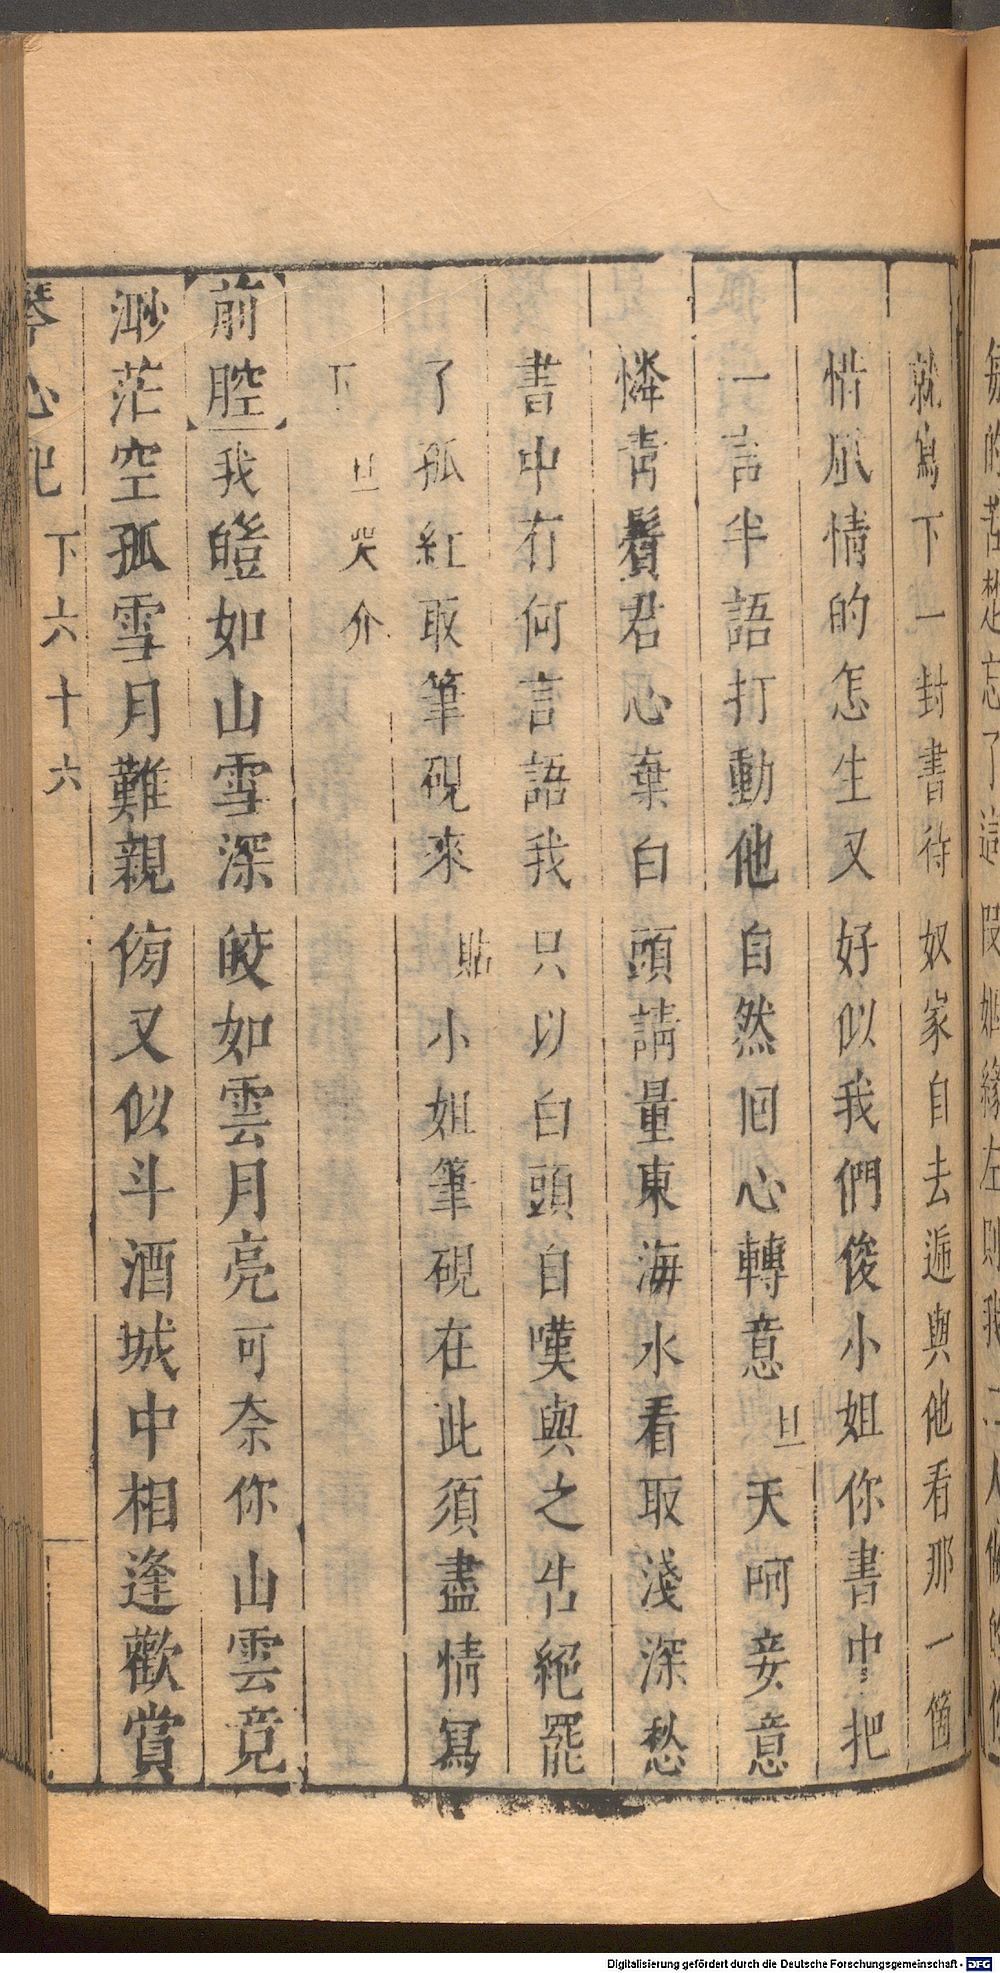 就寫下一封書待奴家自去遞與他看那一箇
惜風情的怎生又好似我們俊小姐你書中把
一言半語打動他自然回心轉意旦天呵妾意
憐青鬢君心棄白頭請量東海水看取淺深愁
書中有何言語我只以白頭自嘆與之告絕罷
了孤紅取筆硯來貼小姐筆硯在此須盡情寫
下旦哭介
前腔我皚如山雪深皎如雲月亮可奈你山雲竟
渺茫空孤雪月難親傍又似斗酒城中相逢歡賞
琴心記 下六十六
Digitalisierung gefördert durch die Deutsche Forschungsgemeinschaft - DFG